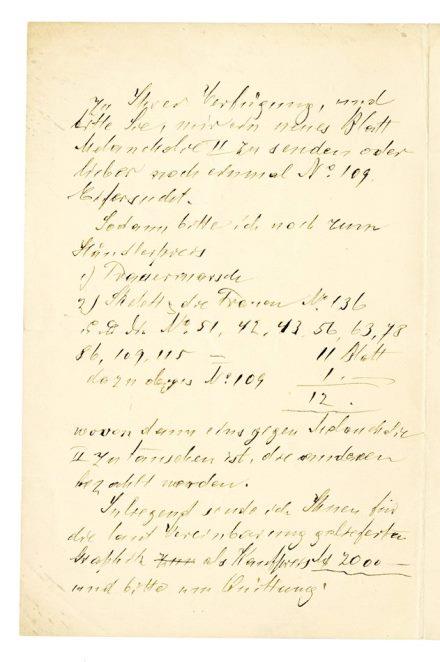 zu Ihrer Verfügung, und
bitte Sie, mir ein neues Blatt
Melancholie II zu senden oder
lieber noch einmal No. 109
Eifersucht.
Sodann bitte ich noch zum
Künstlerpreis
1) Trauermarsch
2) die Frauen No. 136
No. 51, 42, 43, 56, 63, 78
86, 109, 115 — 11 Blatt
dazu No 109 1.
12.
wovon dann eins gegen Melancholie
II zu tauschen ist, die anderen
bezahlt werden.
Inliegend sende ich Ihnen für
die laut Vereinbarung gelieferte
Graphik als Kaufpreis M 2000 —
und bitte um Quittung.